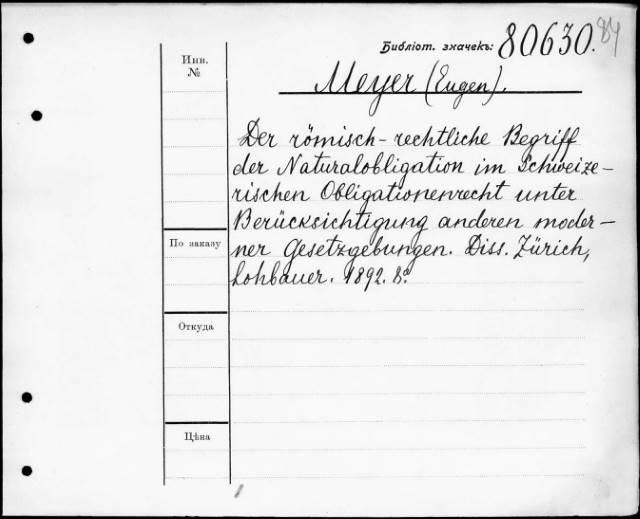 Библіот. значекъ: 80630. 84
Инв.
№
Meyer (Eugen).
Der römisch-rechtliche Begriff
der Naturalobligation im Schweize-
rischen Obligationenrecht unter
Berücksichtigung anderen moder-
ner Gesetzgebungen. Diss. Zürich,
Lohbauer. 1892. 8º.
По заказу
Откуда
Цѣна